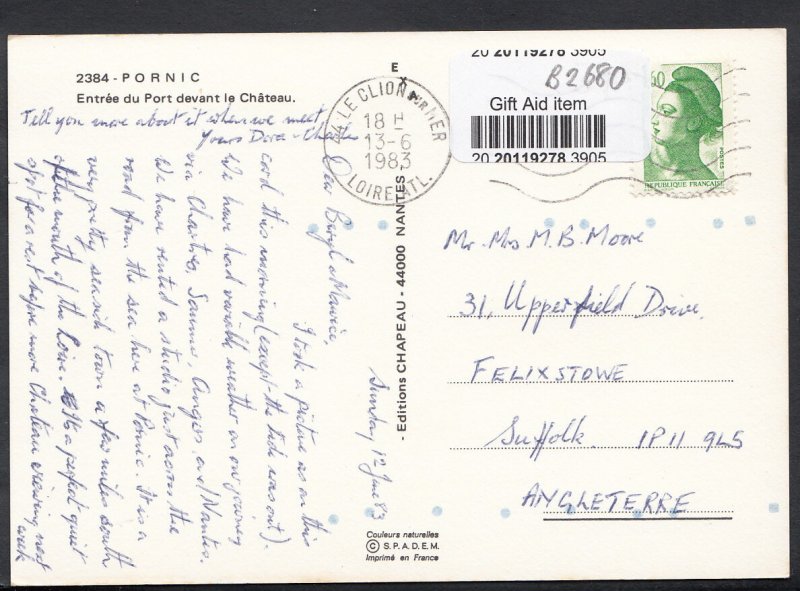 2384 - PORNIC
Entrée du Port devant le Château.
Tell you more about it when we meet
Yours Dora & Charles
Sunday 12 June 83
Dear Beryl & Maurice,
I took a picture as on this
card this morning (except the tide was out).
We have had variable weather on our journey
via Chartres, Saumur, Angers and Nantes.
We have rented a studio just across the
road from the sea here at Pornic. It is a
very pretty seaside town a few miles south
of the mouth of the Loire. It is a perfect quiet
spot for a rest before more Chateau viewing next
week
Editions CHAPEAU - 44000 NANTES
E
44 LE CLION SUR MER
18 H
13-6
1983
LOIRE ATL.
20 20119278 3905
B2680
Gift Aid item
20 20119278 3905
60
POSTES
REPUBLIQUE FRANÇAISE
Mr. Mrs M.B. Moore
31, Upperfield Drive.
FELIXSTOWE
Suffolk. IP11 9LS
ANGLETERRE
Couleurs naturelles
© S.P.A.D.E.M.
Imprimé en France